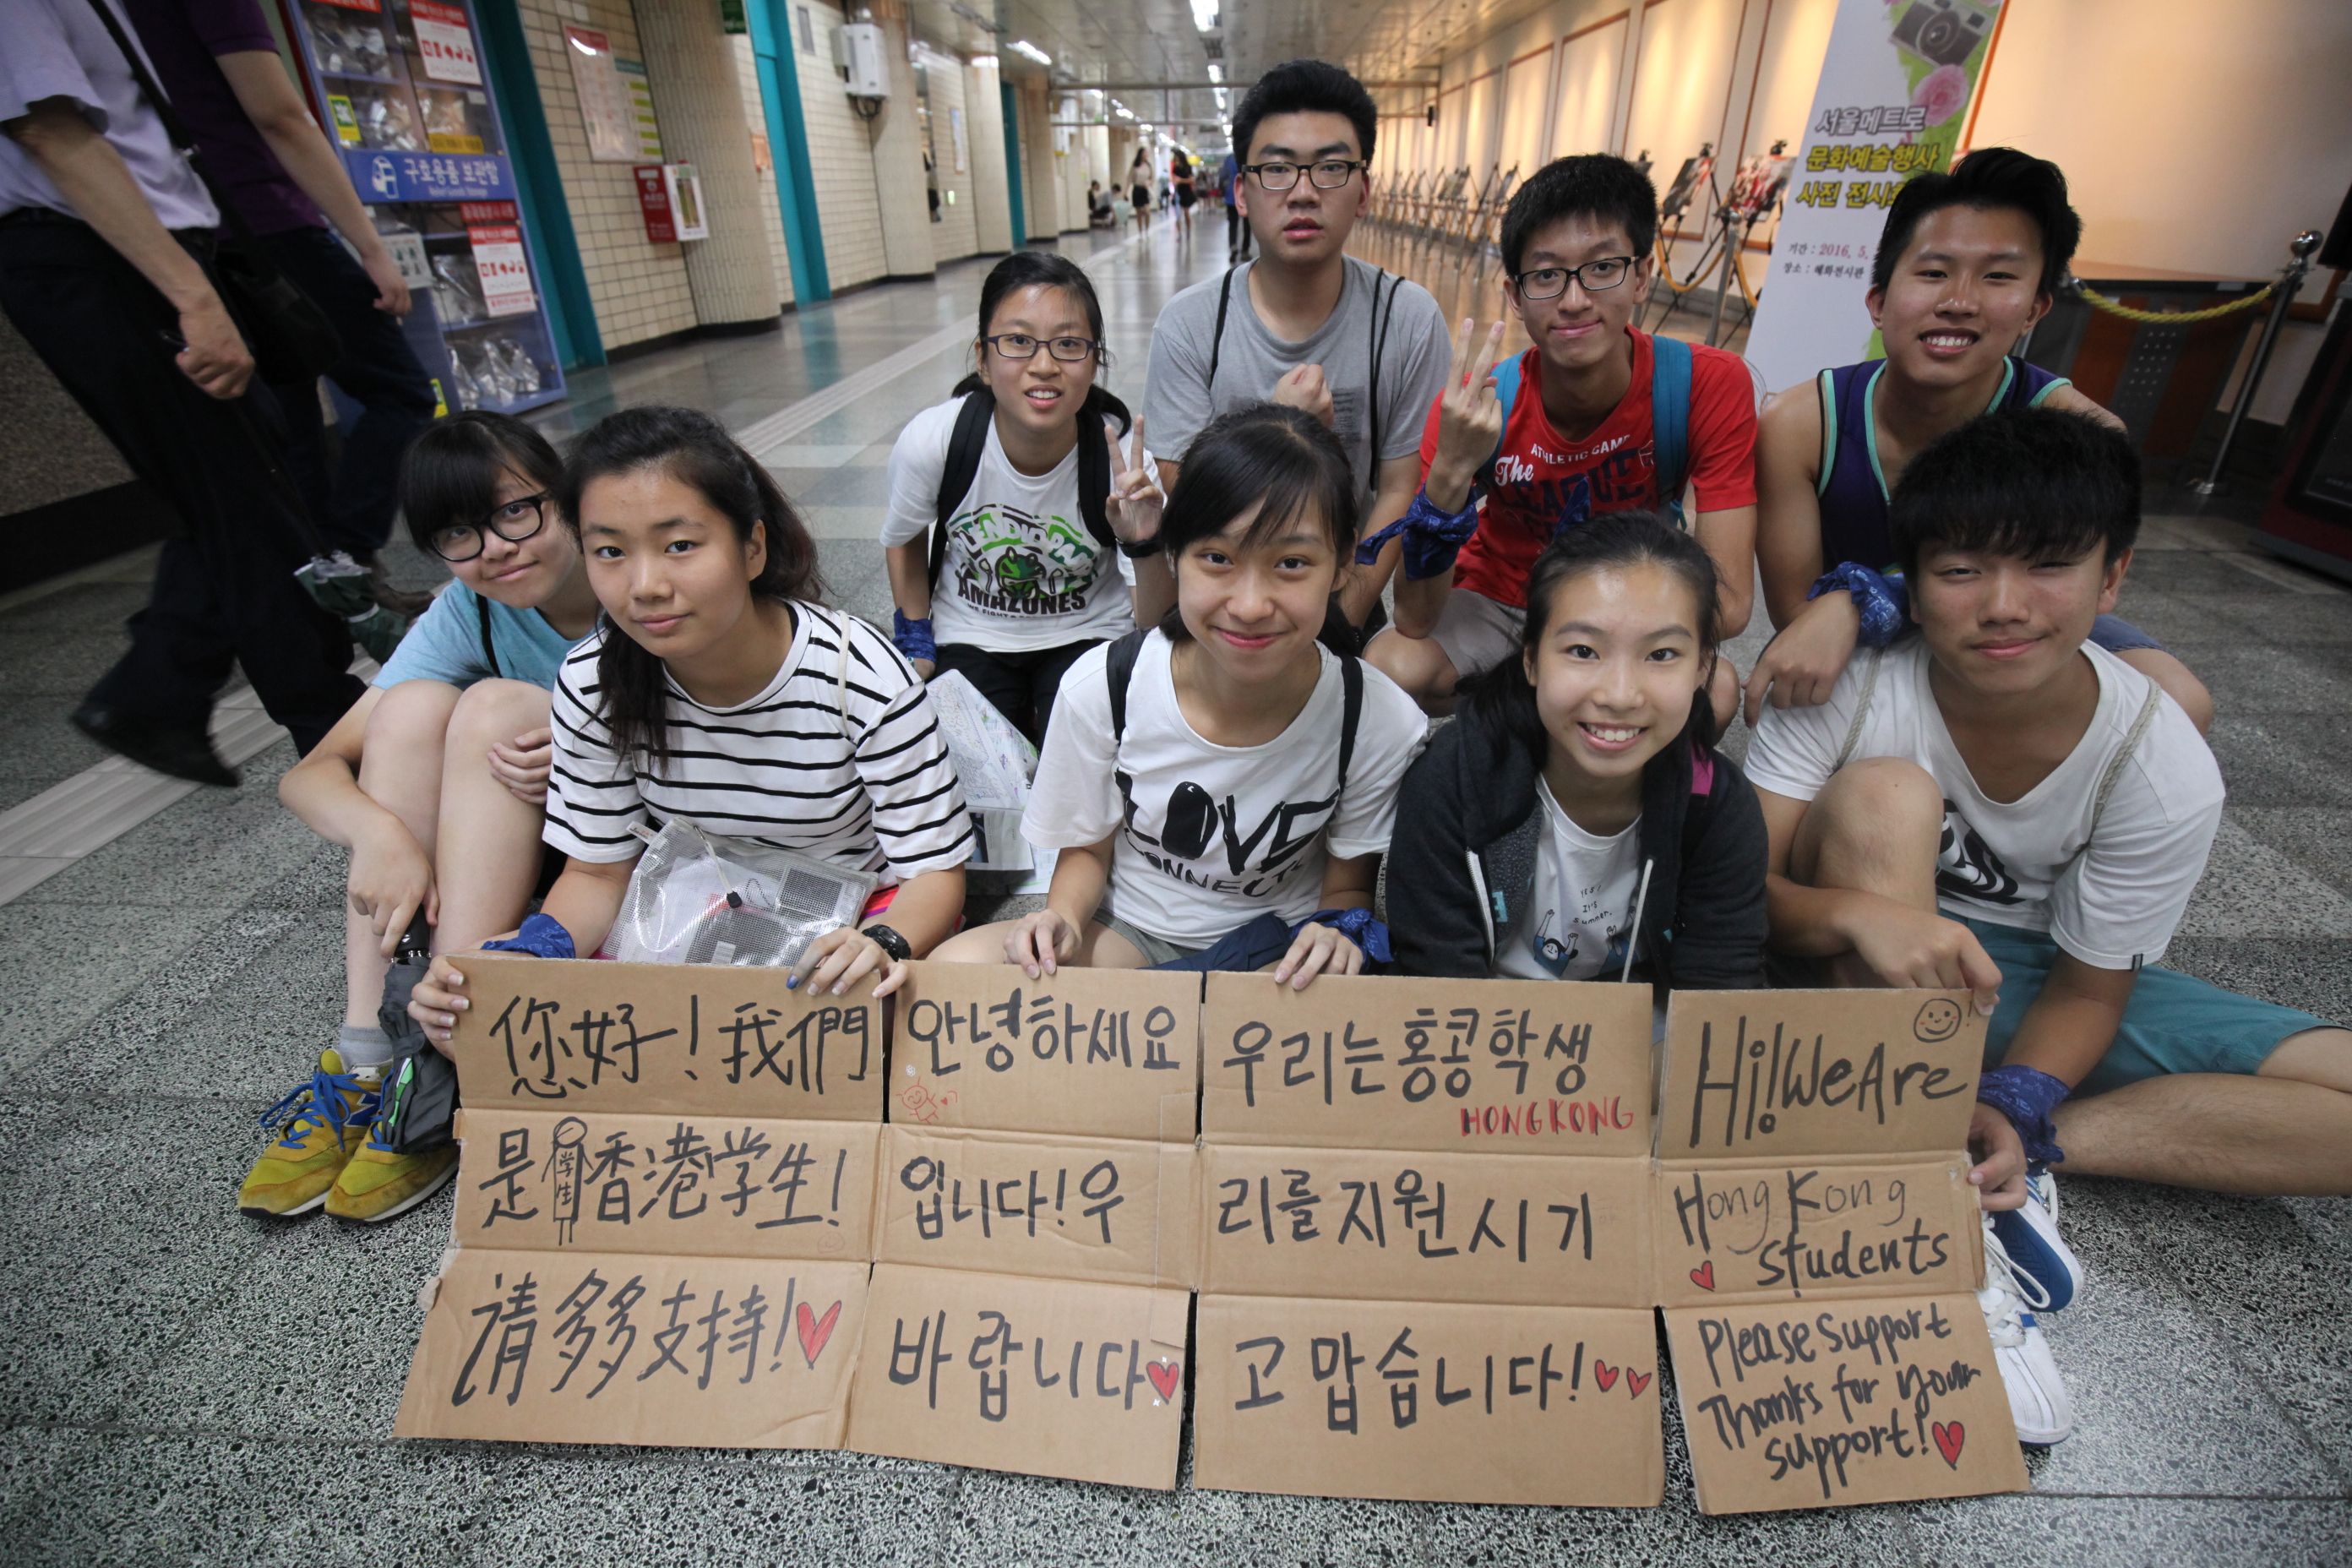 구호용품 보관함
AED
서울메트로
문화예술행사
사진 전시회
기간 : 2016. 5.
장소 : 혜화전시관
AMAZONES
ATHLETIC GAME
The
LEAGUE
LOVE
CONNECTS
YES!
IT'S
summer.
您好! 我們
是 学生 香港学生!
請多多支持!
안녕하세요
입니다! 우
바랍니다
우리는홍콩학생
HONG KONG
리를 지원 시기
고맙습니다!
Hi! We Are
Hong Kong
students
Please support
Thanks for your
support!